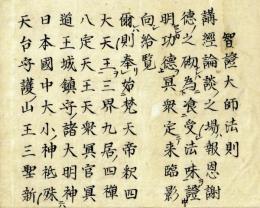 智證大師法則
講經論談之場報恩謝
德之砌為食受法味證
明功德冥衆定来臨影
向給覧
爾則奉始梵天帝釈四
大天王三界九居四禅
八定天王天衆冥官冥
道王城鎮守諸大明神
日本國中大小神祇殊
天台守護山王三聖新